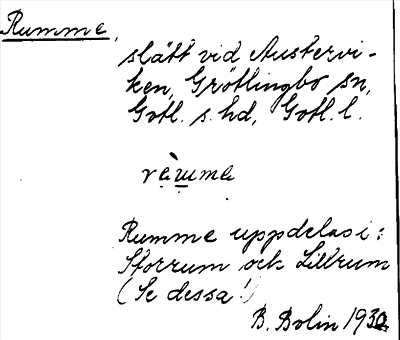 Rumme,
slätt vid Austervi-
ken, Grötlingbo sn,
Gotl. s. hd, Gotl. l.
Rumme uppdelas i:
Storrum och Lillrum
(Se dessa!)
B. Bolin 1930